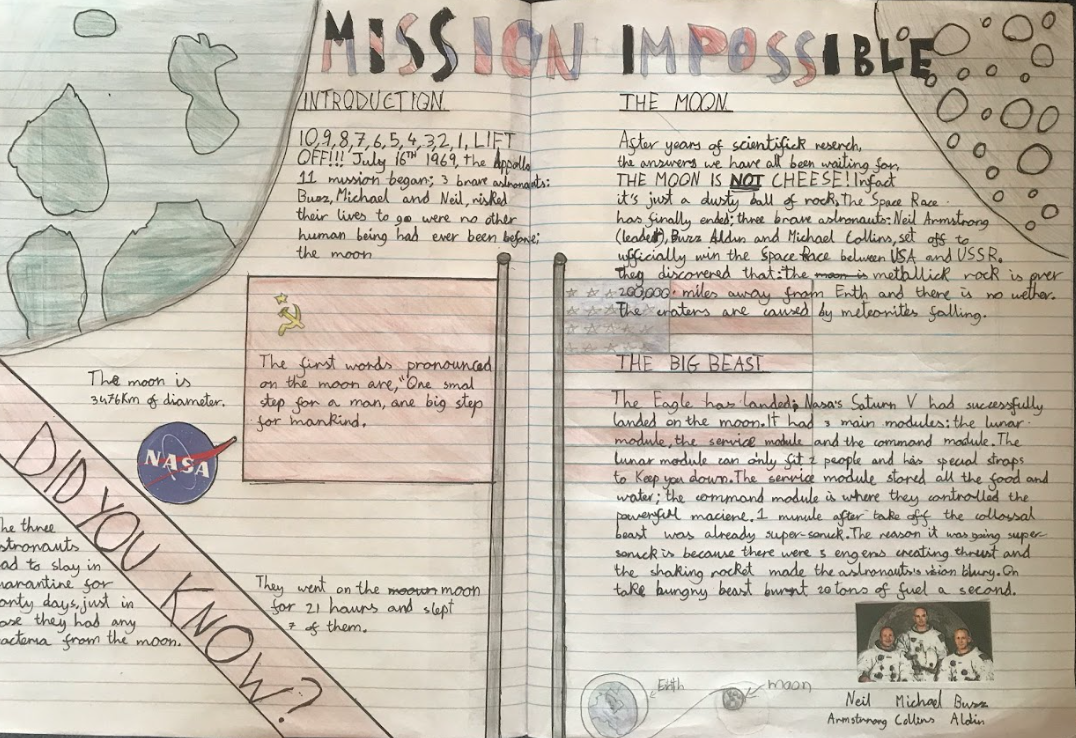 MISSION IMPOSSIBLE
INTRODUCTION
10,9,8,7,6,5,4,3,2,1, LIFT
OFF!!! July 16TH 1969, the Appollo
11 mission began; 3 brave astronants:
Buzz, Michael and Neil, risked
their lives to go were no other
human being had ever been before;
the moon
The first words pronounced
on the moon are, "One smal
step for a man, one big step
for mankind.
The moon is
3476Km of diameter.
NASA
DID YOU KNOW?
he three
stronauts
ad to stay in
uarantine for
enty days, just in
ase they had any
acteria from the moon.
They went on the mooun moon
for 21 hours and slept
7 of them.
THE MOON
After years of scientifick reserch,
the answers we have all been waiting for,
THE MOON IS NOT CHEESE! Infact
it's just a dusty ball of rock, The Space Race
has finally ended; three brave astronauts: Neil Armstrong
(leader), Buzz Aldin and Michael Collins, set off to
ufficially win the Space Race between USA and USSR.
They discovered that: the moon is metallick rock is over
200,000 miles away from Erth and there is no wether.
The craters are caused by meteorites falling.
THE BIG BEAST
The Eagle has landed; Nasa's Saturn V had successfully
landed on the moon. It had 3 main modules: the lunar
module, the service module and the command module. The
lunar module can only fit 2 people and has special straps
to Keep you down. The service module stored all the food and
water; the command module is where they controlled the
powerful maciene. 1 minute after take off the collossal
beast was already super-sonick. The reason it was going super-
sonick is because there were 5 engens creating thrust and
the shaking rocket made the astronauts's vision blury. On
take bungny beast burnt 20 tons of fuel a second.
Erth
moon
Neil Michael Buzz
Armstrong Collins Aldin